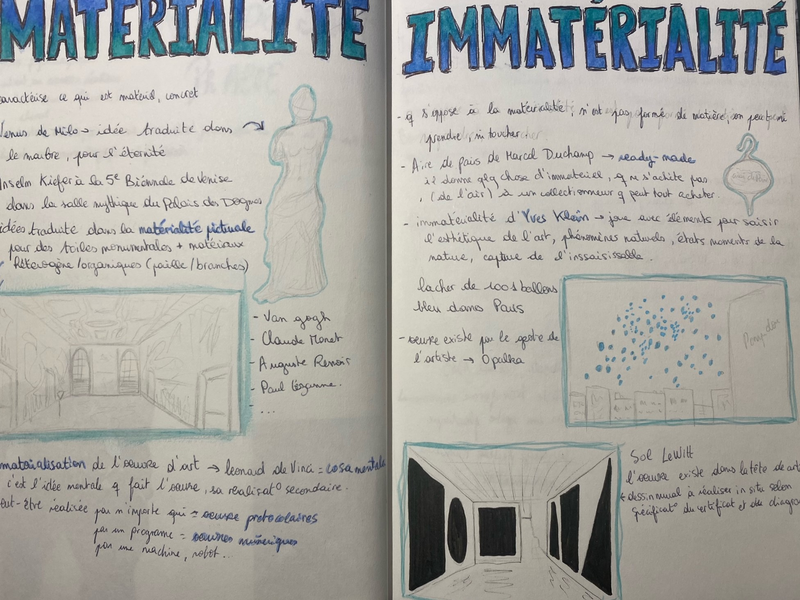 MATÉRIALITÉ
caractérise ce qui est matériel, concret
Venus de Milo → idée traduite dans
le marbre, pour l'éternité
Anselm Kiefer à la 5e Biénnale de Venise
dans la salle mythique du Palais des Dogues
idées traduite dans la matérialité picturale
pour des toiles monumentales + matériaux
hétérogène/organiques (paille/branches)
- Van gogh
- Claude Monet
- Auguste Renoir
- Paul Cézanne.
- ...
matérialisation de l'oeuvre d'art → leonard de Vinci = cosa mentale
c'est l'idée mentale q fait l'oeuvre, sa réalisat° secondaire.
eut-être réalisée par n'importe qui = oeuvre protocolaires
par un programme = oeuvres numériques
par une machine, robot...
IMMATÉRIALITÉ
- q s'oppose à la matérialité, n'est pas formé de matière, on peut ni
prendre, ni toucher.
- Aire de paris de Marcel Duchamp → ready-made
il donne qlq chose d'immateriel, q ne s'achète pas
(de l'air) à un collectionneur q peut tout acheter.
- immatérialité d'Yves Klein → joue avec éléments pour saisir
l'esthétique de l'art, phénomènes naturels, états moments de la
nature, capture de l'inssaisissable.
lacher de 1001 ballons
bleu dans Paris
- oeuvre existe par le geste de
l'artiste → Opalka
Pompidou
Sol LeWitt
l'oeuvre existe dans la tête de
dessin mural à réaliser in situ selon
spécificat° du certificat et du